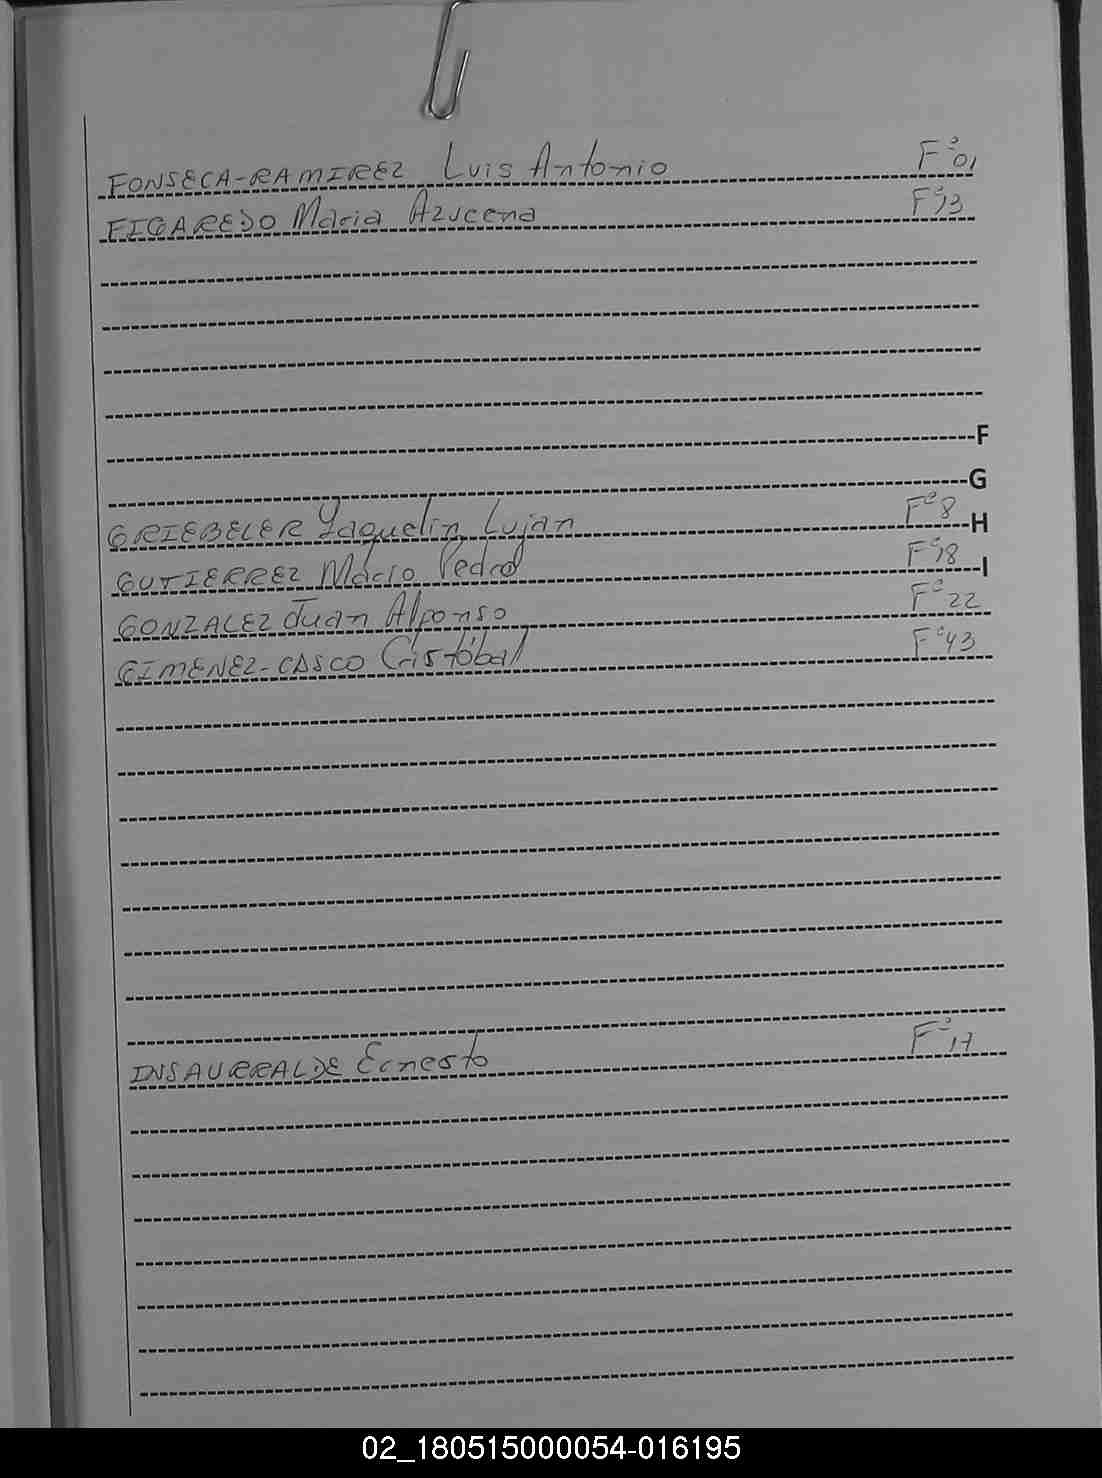 FONSECA-RAMIREZ Luis Antonio Fº 01
FIGAREDO Maria Azucena Fº 13
F
G
GRIEBELER Yaquelin Lujan Fº 8 H
GUTIERREZ Mario Pedro Fº 18 I
GONZALEZ Juan Alfonso Fº 22
GIMENEZ-CASCO Cristóbal Fº 43
INSAURRALDE Ernesto Fº 17
02_180515000054-016195